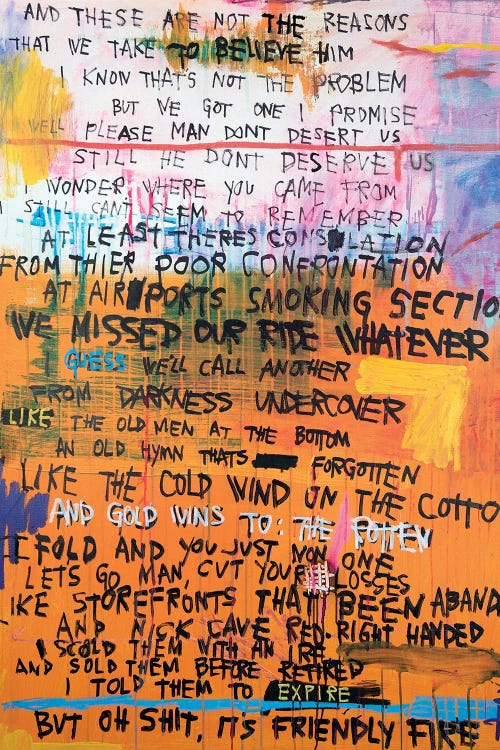 AND THESE ARE NOT THE REASONS
THAT WE TAKE TO BELIEVE HIM
I KNOW THAT'S NOT THE PROBLEM
BUT WE GOT ONE I PROMISE
WELL PLEASE MAN DONT DESERT US
STILL HE DONT DESERVE US
I WONDER WHERE YOU CAME FROM
I STILL CANT SEEM TO REMEMBER
AT LEAST THERES CONS LATION
FROM THIER POOR CONFRONTATION
AT AIR PORTS SMOKING SECTIO
WE MISSED OUR RIDE WHATEVER
GUESS WE'LL CALL ANOTHER
FROM DARKNESS UNDERCOVER
LIKE THE OLD MEN AT THE BOTTOM
AN OLD HYMN THATS FORGOTTEN
LIKE THE COLD WIND ON THE COTTO
AND GOLD WINS TO: THE ROTTEN
I FOLD AND YOU JUST WON ONE
LETS GO MAN, CUT YOUR LOSSES
IKE STOREFRONTS THAT BEEN ABAND
AND NICK CAVE RED. RIGHT HANDED
I SCOLD THEM WITH AN IRE
AND SOLD THEM BEFORE RETIRED
I TOLD THEM TO EXPIRE
BUT OH SHIT, IT'S FRIENDLY FIRE